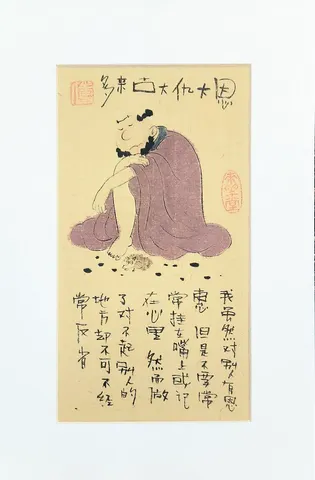 恩大仇大古来多
我虽然对别人有恩
惠 但是不要常
常挂在嘴上或记
在心里 然而做
了对不起别人的
地方却不可不经
常反省